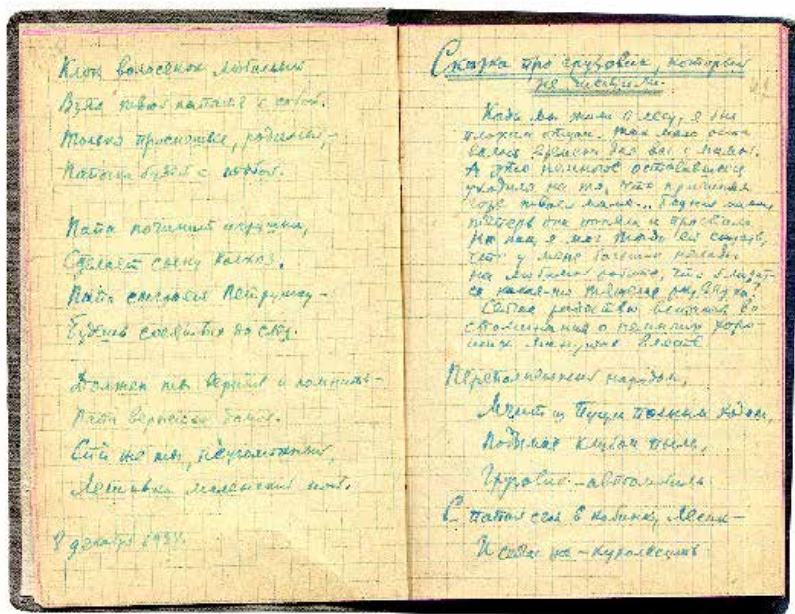 Клок волосёнок любимый
Взял твой папаня с собой.
Только проснёшься, родимый,-
Папочка будет с тобой.
Папа починит игрушки,
Сделает сыну колхоз.
Папа смастерит Петрушку-
Будешь смеяться до слёз.
Должен ты верить и помнить-
Папа вернётся домой.
Спи же ты, неугомонный,
маленький мой.
8 декабря 193
Сказка про грузовик, который
не
Когда мы жили в лесу, я был
плохим отцом. Так мало оста
валось времени для вас с мамой.
А это немногое оставшееся
уходило на то, что причинял
горе твоей маме... Бедная мама,
теперь она поняла и простила
Но как я мог тогда ей сказать,
что у меня большие нелады
на любимой работе, что близит-
ся какая-то тяжёлая развязка?
Сейчас радостью
воспоминания о немногих хоро-
ших минутах вместе
Переполненный народом,
Мчит из Пущи полным ходом,
Подымая клубы пыли,
Грузовик-автомобиль.
С папой сел в кабинку Лесик-
И сейчас же-куролесить